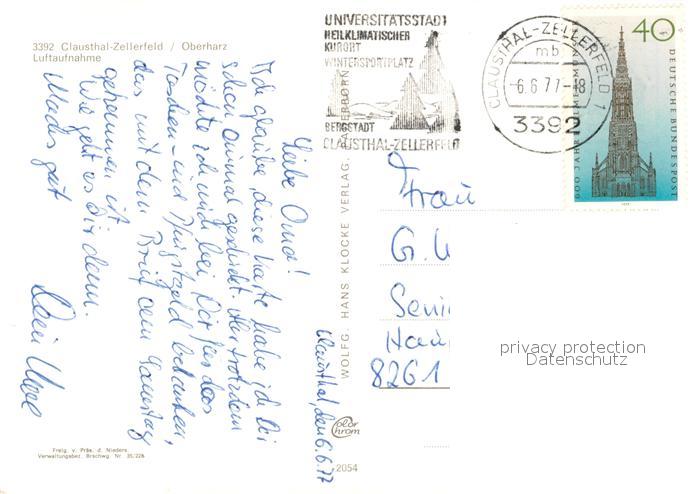 3392 Clausthal-Zellerfeld / Oberharz
Luftaufnahme
UNIVERSITÄTSSTADT
HEILKLIMATISCHER
KURORT
WINTERSPORTPLATZ
BERGSTADT
CLAUSTHAL-ZELLERFELD
CLAUSTHAL-ZELLERFELD 1
mb
-6.6.77-18
3392
40
DEUTSCHE BUNDESPOST
600 JAHRE ULMER MÜNSTER
1977
Clausthal, den 6.6.77
Liebe Oma!
Ich glaube, diese Karte habe ich Dir
schon einmal geschickt. Trotzdem
möchte ich mich bei Dir für das
Taschen- und Pfingstgeld bedanken,
das mit dem Brief am Samstag
gekommen ist.
Wie geht es Dir denn.
Machs gut
Dein Uwe
WOLFG. HANS KLOCKE VERLAG, PADERBORN
Frau
G. W
Seni
Hau
8261
privacy protection
Datenschutz
Color
Chrom
2054
Freig. v. Präs. d. Nieders.
Verwaltungsbez. Brschwg. Nr. 35/226